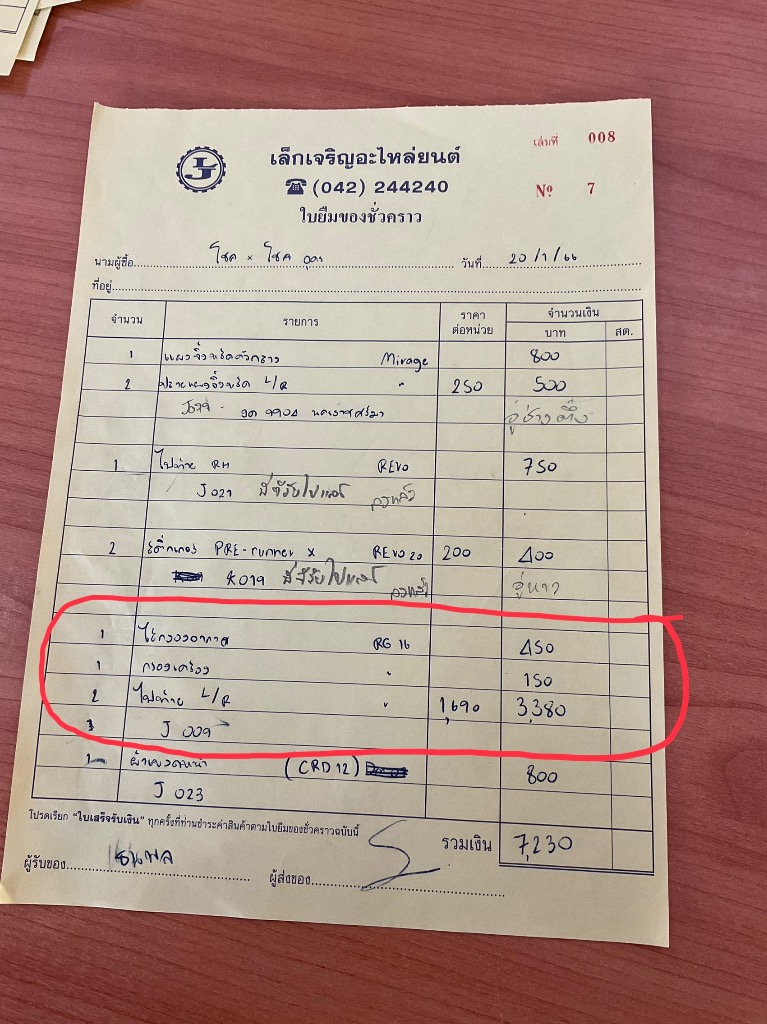 เล่มที่ 008
เล็กเจริญอะไหล่ยนต์
☎ (042) 244240
Nº 7
ใบยืมของชั่วคราว
นามผู้ซื้อ โชค x โชค อุดร วันที่ 20/1/66
ที่อยู่
จำนวน รายการ ราคาต่อหน่วย จำนวนเงิน
บาท สต.
1 แผงจิ้งหรีดตัวกลาง Mirage 800
2 ปลายแผงจิ้งหรีด L/R " 250 500
J079 นครราชสีมา อู่ช่างตึ๋ง
1 ไฟท้าย RH REVO 750
J021
2 สติ๊กเกอร์ PRE-runner x REVO 20 200 400
อู่หาว
1 ไส้กรองอากาศ RG 16 450
1 กรองเครื่อง " 150
2 ไฟท้าย L/R " 1,690 3,380
J 009
1 ผ้าเบรคหน้า (CRD12) 800
J 023
โปรดเรียก "ใบเสร็จรับเงิน" ทุกครั้งที่ท่านชำระค่าสินค้าตามใบยืมของชั่วคราวฉบับนี้
รวมเงิน 7,230
ผู้รับของ ธนพล
ผู้ส่งของ